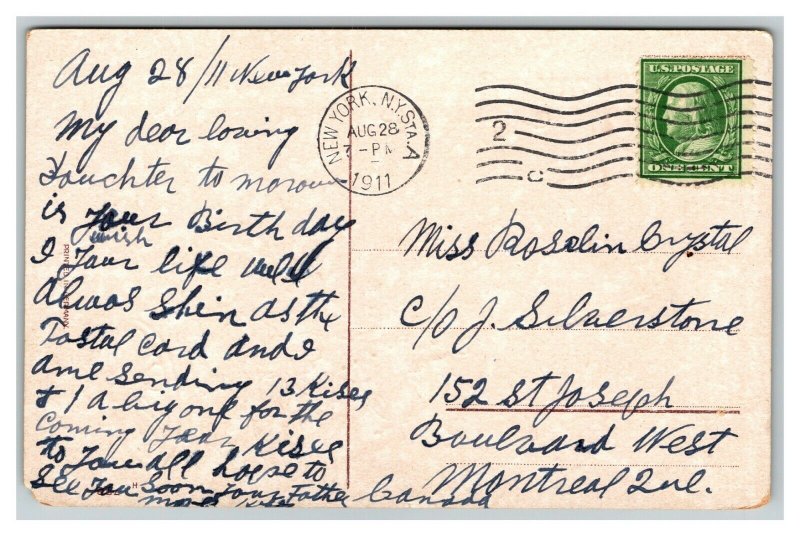 Aug 28/11 New York
My dear loving
Douchter to morow
is Your Birth day
I wish Your life will
Alwas Shin as the
Postal Card and I
ame Sending 13 Kises
& 1 A big one for the
Coming Year Kises
to You all hope to
See You Soon Your Father
NEW YORK, N.Y. STA. A
AUG 28
7 - PM
1911
2
C
U.S. POSTAGE
ONE CENT
Miss Roselin Crystal
C/O J. Silverstone
152 St Joseph
Boulvard West
Montreal Que.
Canada
PRINTED IN GERMANY